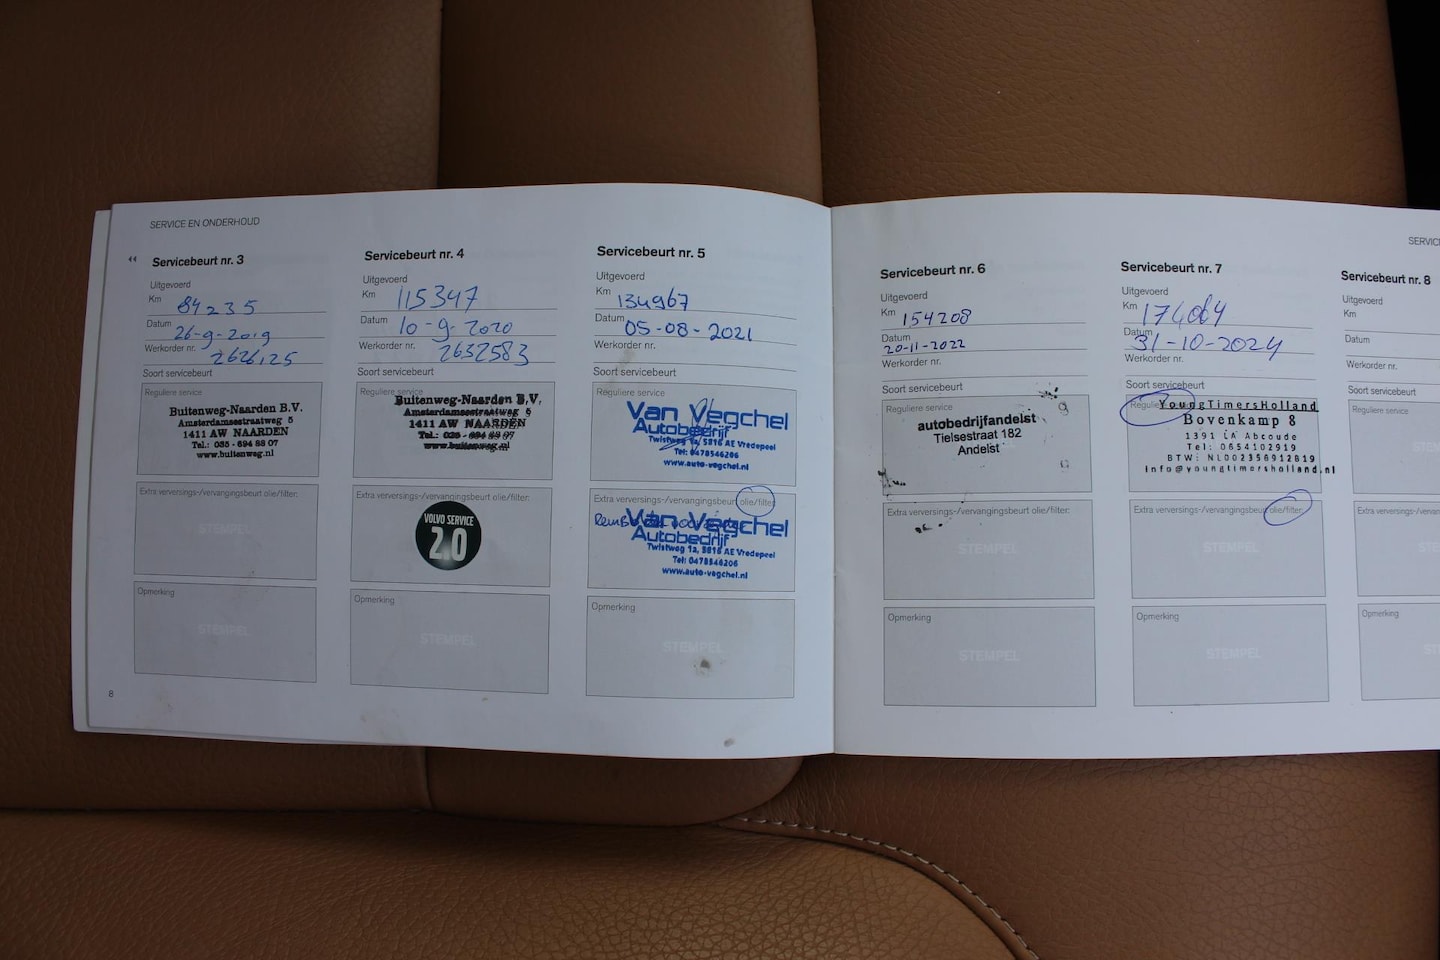 SERVICE EN ONDERHOUD
Servicebeurt nr. 3
Uitgevoerd
Km 84235
Datum 26-9-2019
Werkorder nr. 2626125
Soort servicebeurt
Reguliere service
Buitenweg-Naarden B.V.
Amsterdamsestraatweg 5
1411 AW NAARDEN
Tel.: 035 - 694 88 07
www.buitenweg.nl
Extra verversings-/vervangingsbeurt olie/filter:
STEMPEL
Opmerking
STEMPEL
8
Servicebeurt nr. 4
Uitgevoerd
Km 115347
Datum 10-9-2020
Werkorder nr. 2632583
Soort servicebeurt
Reguliere service
Buitenweg-Naarden B.V.
Amsterdamsestraatweg 5
1411 AW NAARDEN
Tel.: 035 - 694 88 07
www.buitenweg.nl
Extra verversings-/vervangingsbeurt olie/filter:
VOLVO SERVICE
2.0
Opmerking
STEMPEL
Servicebeurt nr. 5
Uitgevoerd
Km 134967
Datum 05-08-2021
Werkorder nr.
Soort servicebeurt
Reguliere service
Van Vegchel
Autobedrijf
Twistweg 1a, 5816 AE Vredepeel
Tel: 0478546206
www.auto-vegchel.nl
Extra verversings-/vervangingsbeurt olie/filter:
Van Vegchel
Autobedrijf
Twistweg 1a, 5816 AE Vredepeel
Tel: 0478546206
www.auto-vegchel.nl
Opmerking
STEMPEL
Servicebeurt nr. 6
Uitgevoerd
Km 154208
Datum
20-11-2022
Werkorder nr.
Soort servicebeurt
Reguliere service
autobedrijfandelst
Tielsestraat 182
Andelst
Extra verversings-/vervangingsbeurt olie/filter:
STEMPEL
Opmerking
STEMPEL
SERVIC
Servicebeurt nr. 7
Uitgevoerd
Km 174064
Datum
31-10-2024
Werkorder nr.
Soort servicebeurt
YoungTimersHolland
Bovenkamp 8
1391 LA Abcoude
Tel: 0654102919
BTW: NL002356912B19
Info@youngtimersholland.nl
Extra verversings-/vervangingsbeurt olie/filter:
STEMPEL
Opmerking
STEMPEL
Servicebeurt nr. 8
Uitgevoerd
Km
Datum
Werkorder nr.
Soort servicebeurt
Reguliere service
STEM
Extra verversings-/vervang
STEM
Opmerking
STE